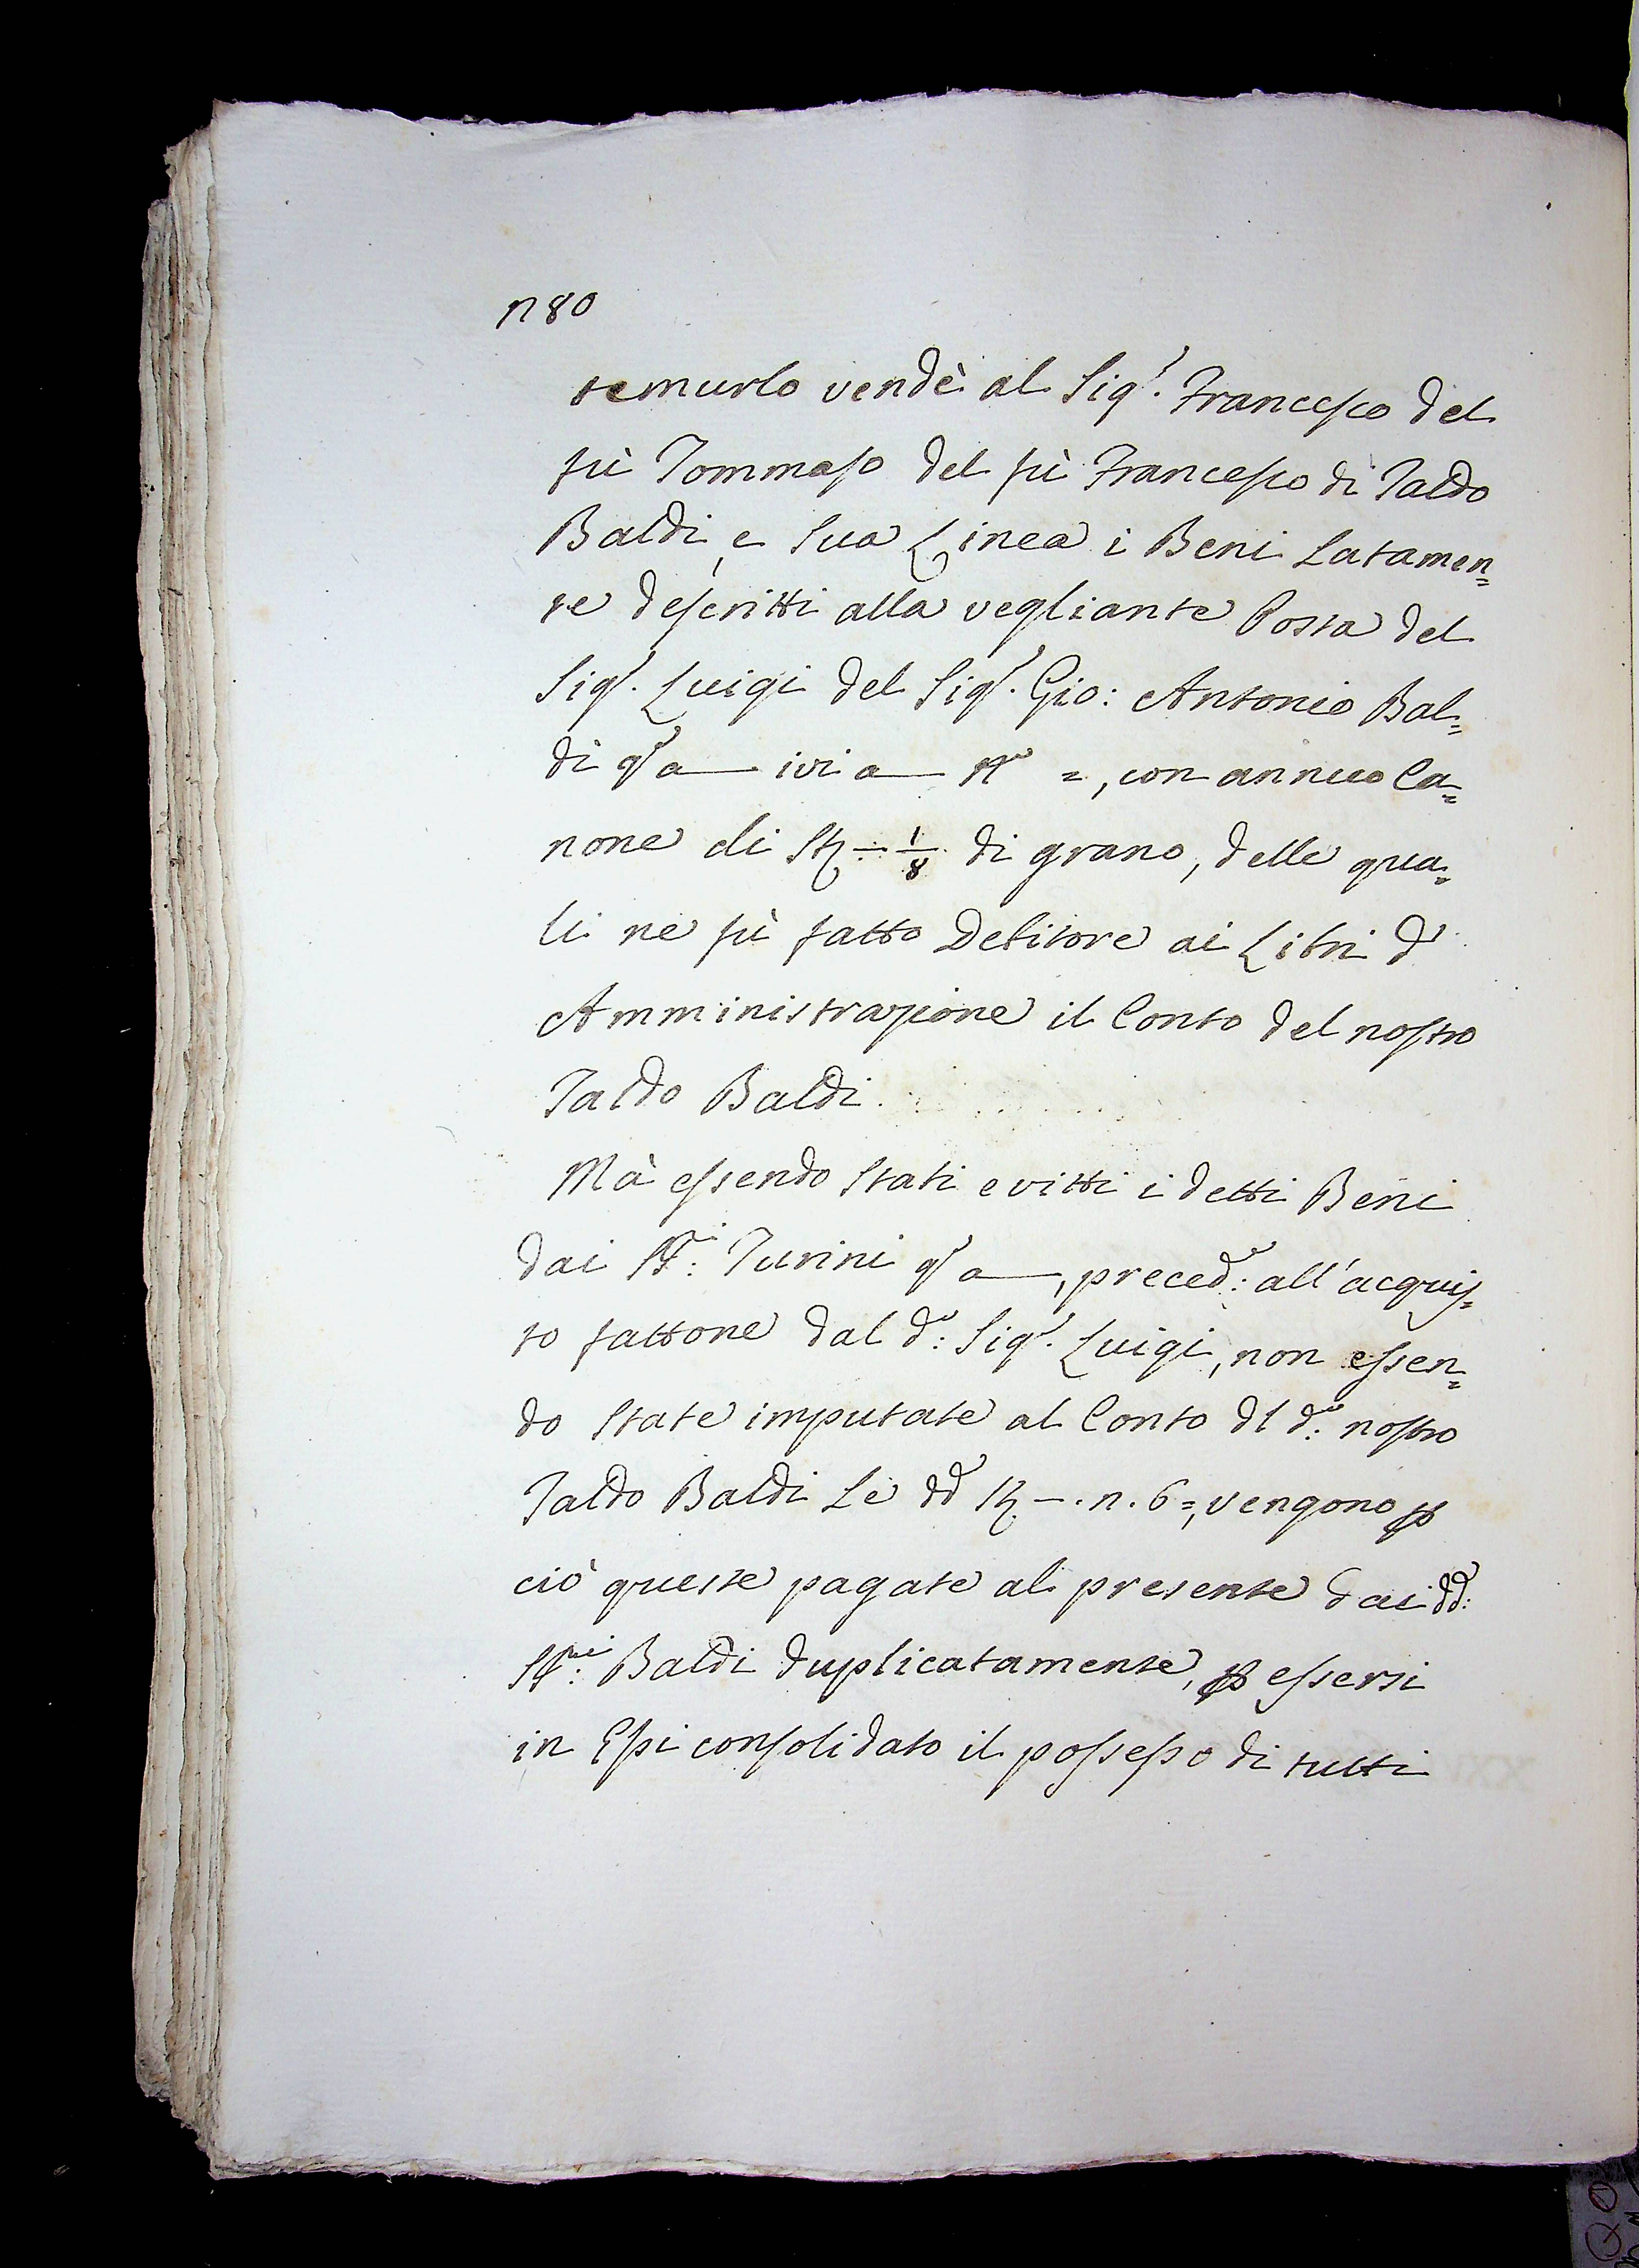 n 80
temurlo vendè al Sig.r Francesco del
fù Tommaso del fù Francesco di Taldo
Baldi, e Sua Linea i Beni Latamen=
te descritti alla vegliante Posta del
Sig.r Luigi del Sig.r Gio: Antonio Bal=
di q.a a— ivi a— N.o =, con annuo Ca=
none di St.— 1/8 di grano, delle qua=
li ne fù fatto Debitore ai Libri d'
Amministrazione il Conto del nostro
Taldo Baldi.
Mà essendo Stati evitti i detti Beni
dai SS.ri: Turini q.a a—, preced.e: all'acquis=
to fattone dal d.o: Sig.r Luigi, non essen=
do State imputate al Conto dl d.o: nostro
Taldo Baldi Le dd.e St. —. n. 6=, vengono p
ciò queste pagate al presente dai dd.:
SS.ri: Baldi duplicatamente, p essersi
in Essi consolidato il possesso di tutti